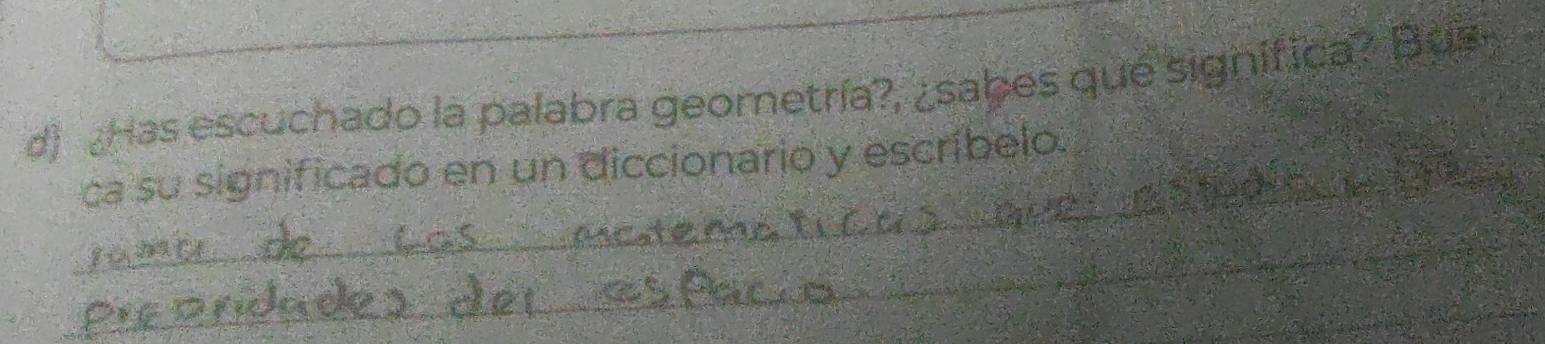 d) ¿Has escuchado la palabra geometría?, ¿sabes qué significa? Bus-
ca su significado en un diccionario y escríbelo.
rama de Las matematicas que estudia
del espacio